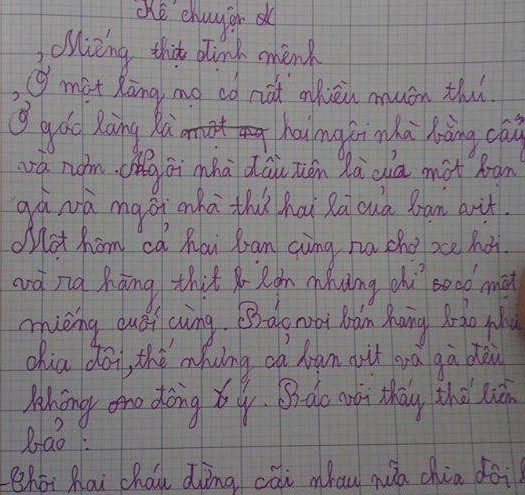 Kể chuyện
Miếng thịt định mệnh
Ở một làng nọ có rất nhiều muôn thú.
Ở góc làng là hai ngôi nhà bằng cây
và rơm. Ngôi nhà đầu tiên là của một bạn
gà và ngôi nhà thứ hai là của bạn vịt.
Một hôm cả hai bạn cùng ra chợ xe hơi.
và ra hàng thịt lợn nhưng chỉ có một
miếng cuối cùng. Bác voi bán hàng bảo
chia đôi, thế nhưng cả bạn vịt và gà đều
không đồng ý. Bác voi thấy thế liền
bảo:
- Thôi hai cháu đừng cãi nhau nữa chia đôi